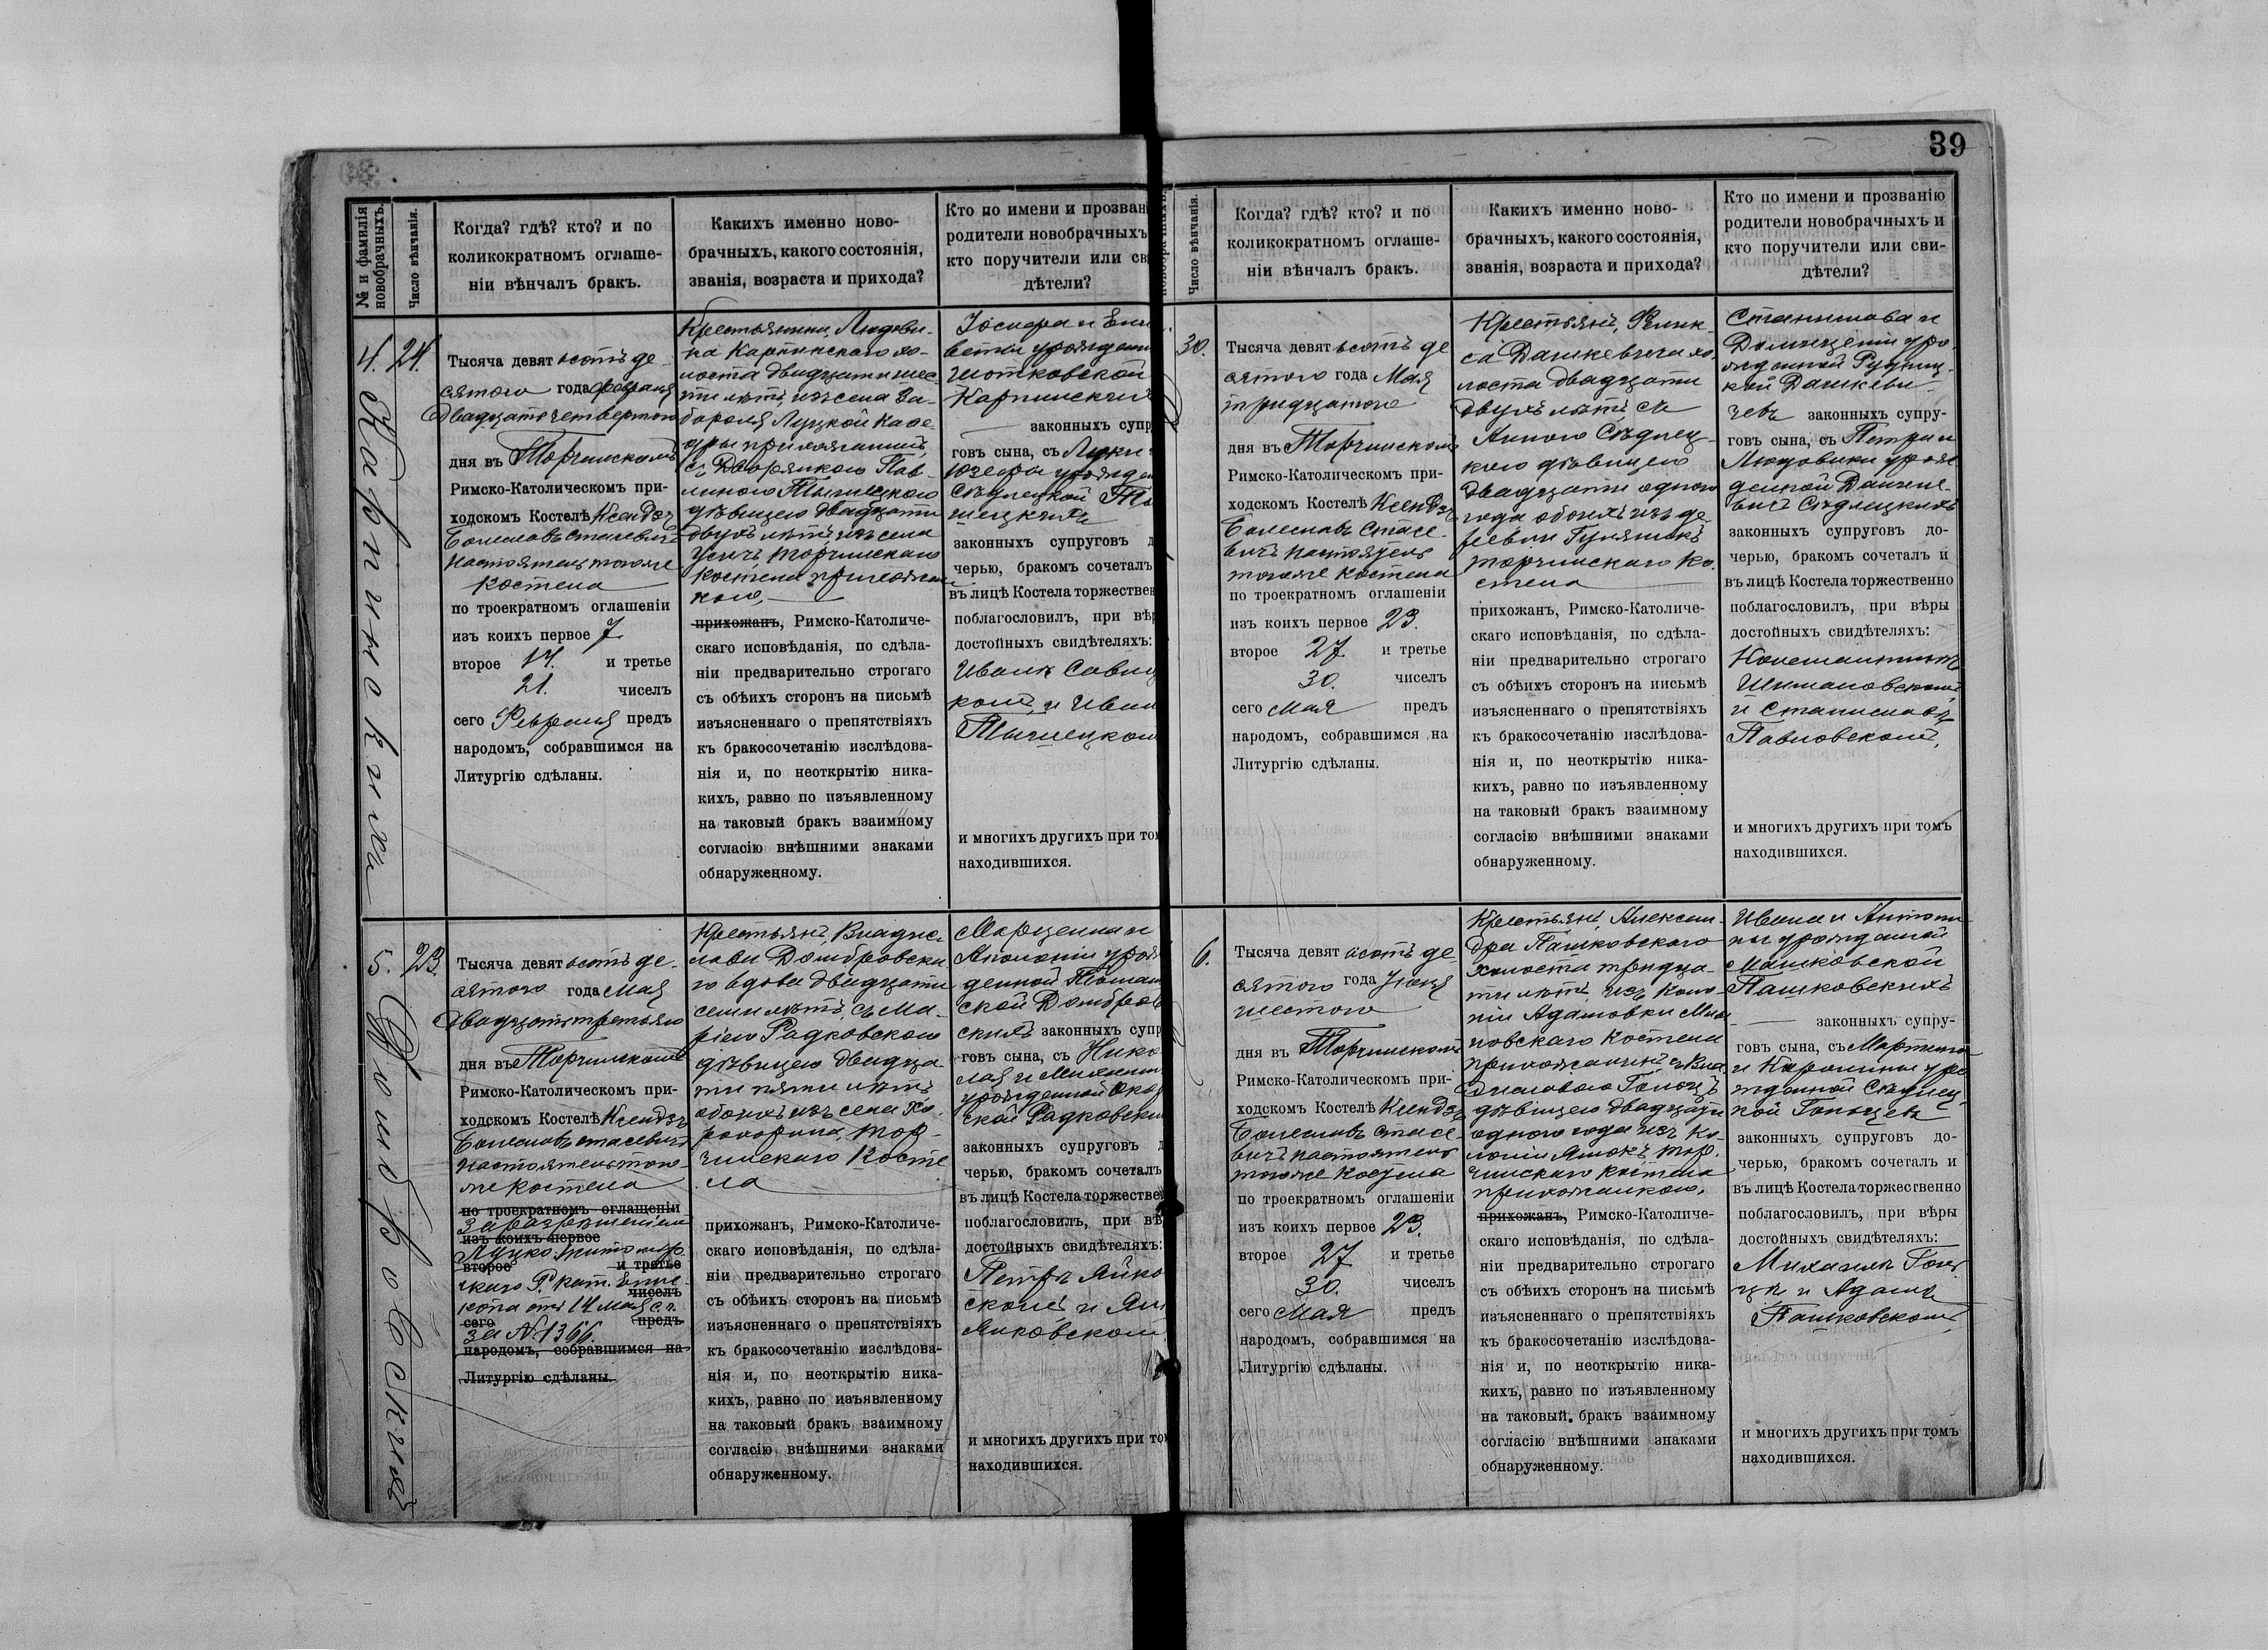 39
№ и фамилія
новобрачныхъ.
Число вѣнчанія.
Когда? гдѣ? кто? и по
коликократномъ оглаше-
ніи вѣнчалъ бракъ.
Каких​ъ именно ново-
брачныхъ, какого состоянія,
званія, возраста и прихода?
Кто по имени и прозван
родители новобрачныхъ
кто поручители или св
дѣтели?
4.
24.
Карпинскии
Тысяча девят ьсотъ де-
сятого года февраля
двадцать четвертого
дня въ Торчинскомъ
Римско-Католическомъ при-
ходскомъ Костелѣ Ксендзъ
Болеславъ Стасевичъ
настоятель тогоже
Костела
по троекратном оглашеніи
изъ коихъ первое 7
второе 14. и третье
21. чиселъ
сего Февраля предъ
народомъ, собравшимся на
Литургію сдѣланы.
Крестьянина Людови-
ка Карпинского хо-
лоста двадцати шес-
ти лѣтъ, изъ села За-
бороля Луцкой Каѳе-
дры прихожанинъ,
съ Дворянкою Пав-
линою
дѣвицею двадцати
двухъ лѣтъ изъ села
Усичъ Торчинскаго
Костела прихожан
кою,
прихожанъ, Римско-Католиче-
скаго исповѣданія, по сдѣла-
ніи предварительно строгаго
съ обѣихъ сторонъ на письмѣ
изъясненнаго о препятствіяхъ
къ бракосочетанію изслѣдова-
нія и, по неоткрытію ника-
кихъ, равно по изъявленному
на таковый бракъ взаимному
согласію внѣшними знаками
обнаруженному.
Іосифа и Ели
веты урожден
Шотковской
Карпинских
законныхъ супр
говъ сына, съ Луки
Юзефы урожден
Сѣдлецкой
законныхъ супруговъ д
черью, бракомъ сочеталъ
въ лицѣ Костела торжествен
поблагословилъ, при вѣр
достойныхъ свидѣтеляхъ:
Иванѣ Савиц
комъ, и Иван
и многихъ другихъ при том
находившихся.
5.
23.
Домбровскихъ
Тысяча девят ьсотъ де-
сятого года Мая
двадцать третьяго
дня въ Торчинскомъ
Римско-Католическомъ при-
ходскомъ Костелѣ Ксендзъ
Болеславъ Стасевичъ
настоятель того-
же Костела
по троекратномъ оглащеніи
За разрѣшеніемъ
изъ коихъ первое
Луцко-Житомір
второе и третье
скаго Р. Кат. Епис-
чиселъ
копа отъ 14 Мая с. г.
сего предъ
за № 1366.
народомъ, собравшимся на
Литургію сдѣланы.
Крестьянъ, Владис-
лава Домбровска
го вдовца двадцати
семи лѣтъ, съ Ма-
ріею Радковскою
дѣвицею двадца-
ти пяти лѣтъ
обоихъ изъ села Хо-
рохорина, Тор-
чинскаго Косте
ла
прихожанъ, Римско-Католиче-
скаго исповѣданія, по сдѣла-
ніи предварительно строгаго
съ обѣихъ сторонъ на письмѣ
изъясненнаго о препятствіяхъ
къ бракосочетанію изслѣдова-
нія и, по неоткрытію ника-
кихъ, равно по изъявленному
на таковый бракъ взаимному
согласію внѣшними знаками
обнаруженному.
Марцелла и
Аполоніи урож
денной
ской Домбров
скихъ законныхъ супр
говъ сына, съ Нико
лая и
урожденной
ской Радковски
законныхъ супруговъ д
черью, бракомъ сочеталъ
въ лицѣ Костела торжествен
поблагословилъ, при вѣ
достойныхъ свидѣтеляхъ:
Петръ Янко
скомъ и Ян
Янковском
и многихъ другихъ при то
находившихся.
Число вѣнчанія.
Когда? гдѣ? кто? и по
коликократномъ оглаше-
ніи вѣнчалъ бракъ.
Какихъ именно ново-
брачныхъ, какого состоянія,
званія, возраста и прихода?
Кто по имени и прозванію
родители новобрачныхъ и
кто поручители или сви-
дѣтели?
30.
Тысяча девят ьсотъ де
сятого года Мая
тридцатого
дня въ Торчинскомъ
Римско-Католическомъ при-
ходскомъ Костелѣ Ксендзъ
Болеславъ Стасе-
вичъ настоятель
тогоже Костела
по троекратном оглашеніи
изъ коихъ первое 23.
второе 27 и третье
30. чиселъ
сего Мая предъ
народомъ, собравшимся на
Литургію сдѣланы.
Крестьянъ, Фелик-
са Дашкевича хо-
лоста двадцати
двухъ лѣтъ, съ
Анною Сѣдлец-
кою дѣвицею
двадцати одного
года обоихъ изъ де-
ревни Гуляшокъ
Торчинскаго Ко-
стела
прихожанъ, Римско-Католиче-
скаго исповѣданія, по сдѣла-
ніи предварительно строгаго
съ обѣихъ сторонъ на письмѣ
изъясненнаго о препятствіяхъ
къ бракосочетанію изслѣдова-
нія и, по неоткрытію ника-
кихъ, равно по изъявленному
на таковый бракъ взаимному
согласію внѣшними знаками
обнаруженному.
Станислава и
уро-
жденной Рудниц-
кой Дашкеви-
чевъ законныхъ супру-
говъ сына, съ Петра и
Людовики урож
денной
Сѣдлецкихъ
законныхъ супруговъ до-
черью, бракомъ сочеталъ и
въ лицѣ Костела торжественно
поблагословилъ, при вѣры
достойныхъ свидѣтеляхъ:
Константинѣ
Шимановскомъ
и Станиславѣ
Павловскомъ,
и многихъ другихъ при томъ
находившихся.
6.
Тысяча девят ьсотъ де-
сятого года Іюня
шестого
дня въ Торчинскомъ
Римско-Католическомъ при-
ходскомъ Костелѣ Ксендзъ
Болеславъ Стасе-
вичъ настоятель
тогоже Костела
по троекратномъ оглашеніи
изъ коихъ первое 23.
второе 27 и третье
30. чиселъ
сего Мая предъ
народомъ, собравшимся на
Литургію сдѣланы.
Крестьянъ, Алексан-
дра Пашковского
холоста тридца-
ти лѣтъ изъ коло-
ніи Адамовки
Костела
прихожанинъ, съ Вла
диславою
дѣвицею двадцати
одного года изъ Ко-
лоніи Тор-
чинскаго Костела
прихожанкою,
прихожанъ, Римско-Католиче-
скаго исповѣданія, по сдѣла-
ніи предварительно строгаго
съ обѣихъ сторонъ на письмѣ
изъясненнаго о препятствіяхъ
къ бракосочетанію изслѣдова-
нія и, по неоткрытію ника-
кихъ, равно по изъявленному
на таковый бракъ взаимному
согласію внѣшними знаками
обнаруженному.
Ивана и Антони-
ны урожданной
Машковской
Пашковскихъ
законныхъ супру-
говъ сына, съ Мартина
и Каролины уро
жданной Сѣдлец-
кой
законныхъ супруговъ до-
черью, бракомъ сочеталъ и
въ лицѣ Костела торжественно
поблагословилъ, при вѣры
достойныхъ свидѣтеляхъ:
Михаилѣ
и Адамѣ
Пашковскомъ,
и многихъ другихъ при томъ
находившихся.